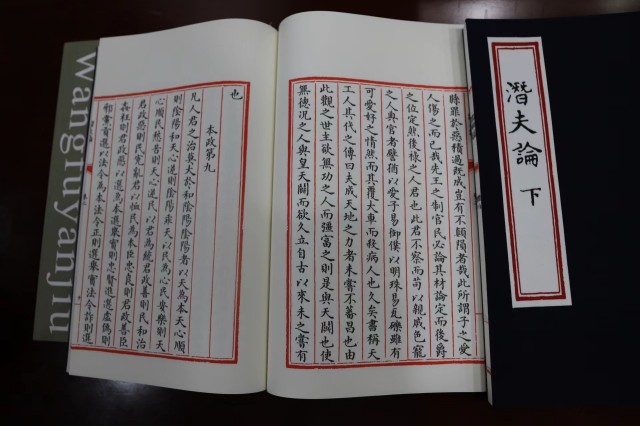 罪於疾積過既成豈有不顛隕者哉此所謂子之愛
人傷之而已哉先王之制官民必論其材論定而後爵
之位定然後祿之人君也此君不察而苟以親戚色寵
之人典官者譬猶以愛子易御僕以明珠易瓦礫雖有
可愛好之情然而其覆大車而殺病人也久矣書稱天
工人其代之傳曰夫成天地之力者未嘗不蕃昌也由
此觀之世主欲無功之人而彊富之則是與天鬭也使
無德況之人與皇天鬭而欲久立自古以來未之嘗有
也
本政第九
凡人君之治莫大於和陰陽陰陽者以天為本天心順
則陰陽和天心逆則陰陽乖天以民為心民安樂則天
心順民愁苦則天心逆民以君為統君政善則民和治
君政惡則民冤亂君以恤民為本臣忠良則君政善臣
姦枉則君政惡以選為本選舉實則忠賢進選虛偽則
邪黨貢選以法令為本法令正則選舉實法令詐則選
潛夫論 下
Wangfuyanjiu